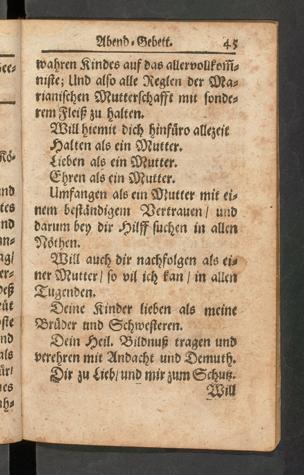 Abend-Gebett. 45
wahren Kindes auf das allervollkom̃-
niste; Und also alle Reglen der Ma-
rianischen Mutterschafft mit sonde-
rem Fleiß zu halten.
Will hiemit dich hinfüro allezeit
Halten als ein Mutter.
Lieben als ein Mutter.
Ehren als ein Mutter.
Umfangen als ein Mutter mit ei-
nem beständigem Vertrauen/ und
darum bey dir Hilff suchen in allen
Nöthen.
Will auch dir nachfolgen als ei-
ner Mutter/ so vil ich kan/ in allen
Tugenden.
Deine Kinder lieben als meine
Brüder und Schwesteren.
Dein Heil. Bildnuß tragen und
verehren mit Andacht und Demuth.
Dir zu Lieb/ und mir zum Schutz.
Will